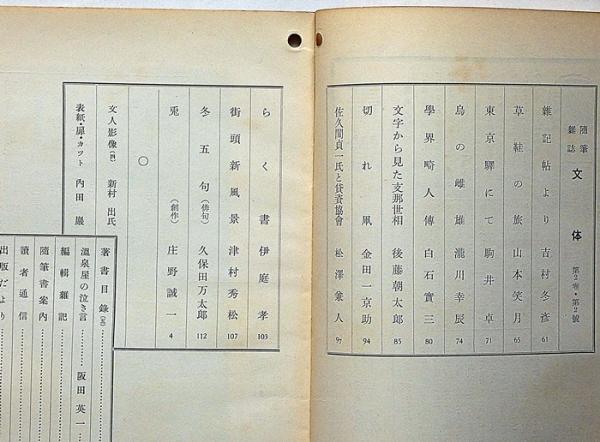 隨筆雜誌 文体 第2卷・第2號
雜記帖より 吉村冬彦 61
草鞋の旅 山本笑月 65
東京驛にて 駒井卓 71
鳥の雌雄 瀧川幸辰 74
學界畸人傳 白石實三 80
文字から見た支那世相 後藤朝太郎 85
切れ凧 金田一京助 94
佐久間貞一氏と貸資協會 松澤兼人 97
らくがき 書 伊庭孝 103
街頭新風景 津村秀松 107
冬五句(俳句) 久保田万太郎 112
兎(創作) 庄野誠一 4
○
文人影像 新村出氏
表紙・扉・カツト 內田巖
著書目錄
溫泉屋の泣き言 阪田英一
編輯雜記
隨筆書案內
讀者通信
出版だより